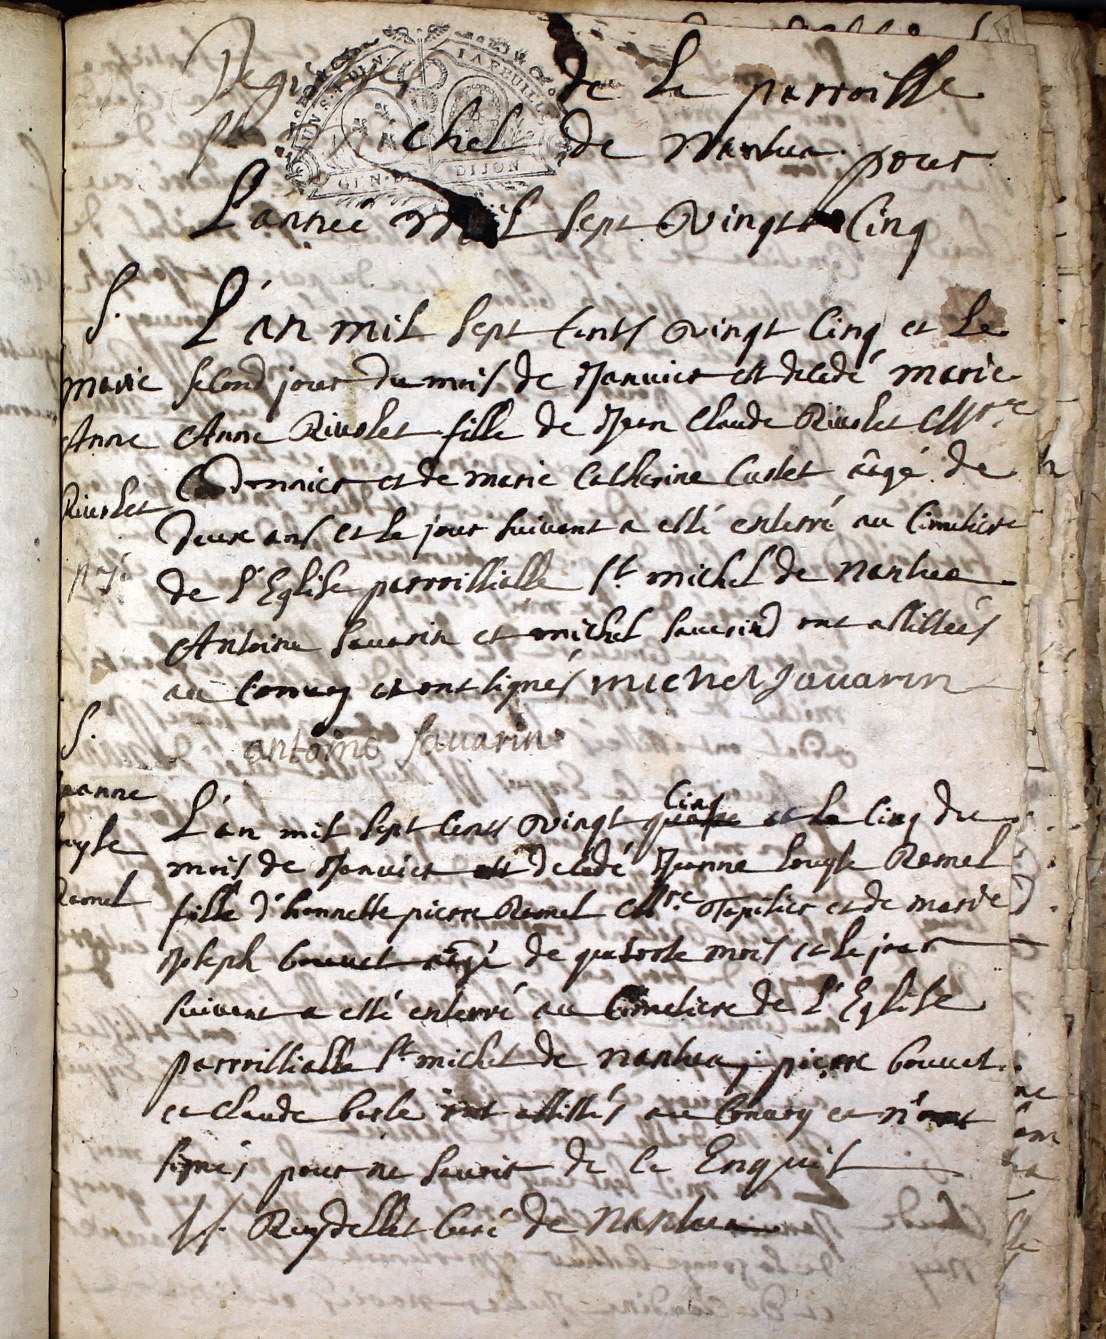 Registre de La parroisse
St Michel de Nantua pour
L'année Mil sept Vingt Cinq
S.
L'an mil sept Cents vingt Cinq et Le
marie
second jour du mois de Janvier est decedé marie
Anne
Anne Rivolet fille de Jean Claude Rivolet Mtre
Rivolet
Cordonnier et de marie Catherine Custet aâgé de
deux ans et le jour suivant a esté enterré au Cimetiere
de l'Eglise parroissialle St michel de nantua
Antoine Savarin et michel Savarin ont assistés
au Convoy et ont signés michel Savarin
antoine Savarin
S.
Jeanne
L'an mil sept Cents vingt quatre Cinq et Le Cinq du
louyse
mois de Janvier est decedé Jeanne louyse Ramel
Ramel
fille d'honneste pierre Ramel Mtre Tapisier et de marie
Joseph bouvet aâgé de quatorse mois et le jour
suivant a esté enterré au Cimetiere de L'Eglise
parroissialle St michel de nantua, pierre bouvet
et Claude berle ont assistés au Convoy et n'ont
signés pour ne savoir de ce Enquis
Reydellet Curé de nantua
GEN. DE DIJON